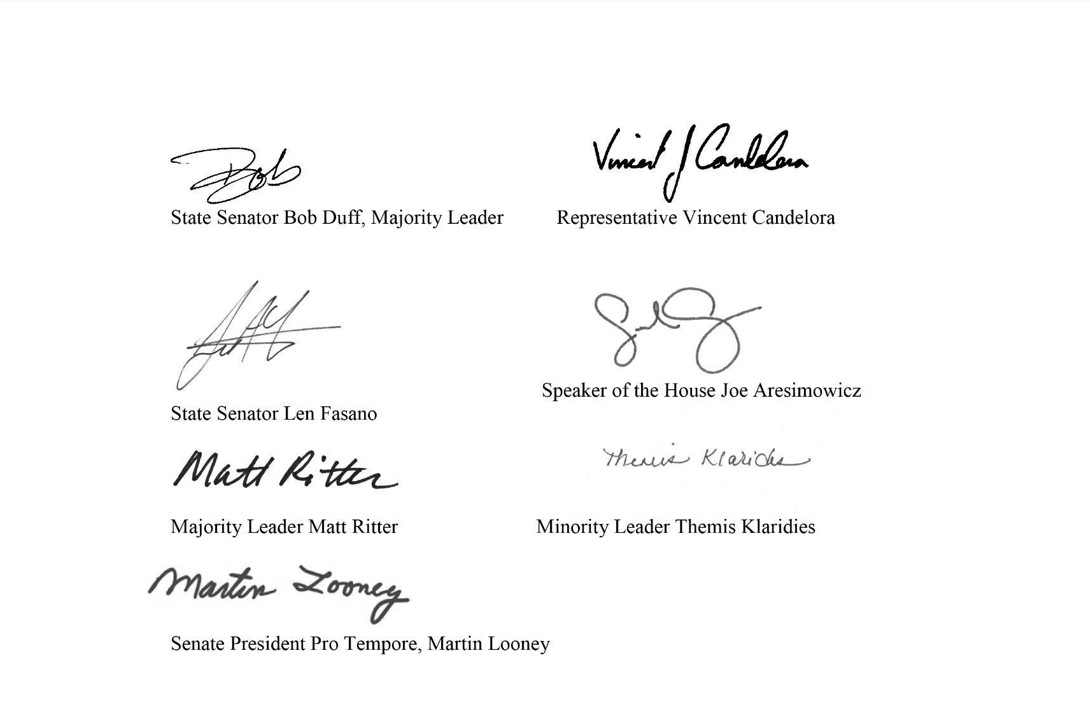 Bob
Vincent J Candelora
State Senator Bob Duff, Majority Leader
Representative Vincent Candelora
Speaker of the House Joe Aresimowicz
State Senator Len Fasano
Matt Ritter
Themis Klarides
Majority Leader Matt Ritter
Minority Leader Themis Klaridies
Martin Looney
Senate President Pro Tempore, Martin Looney